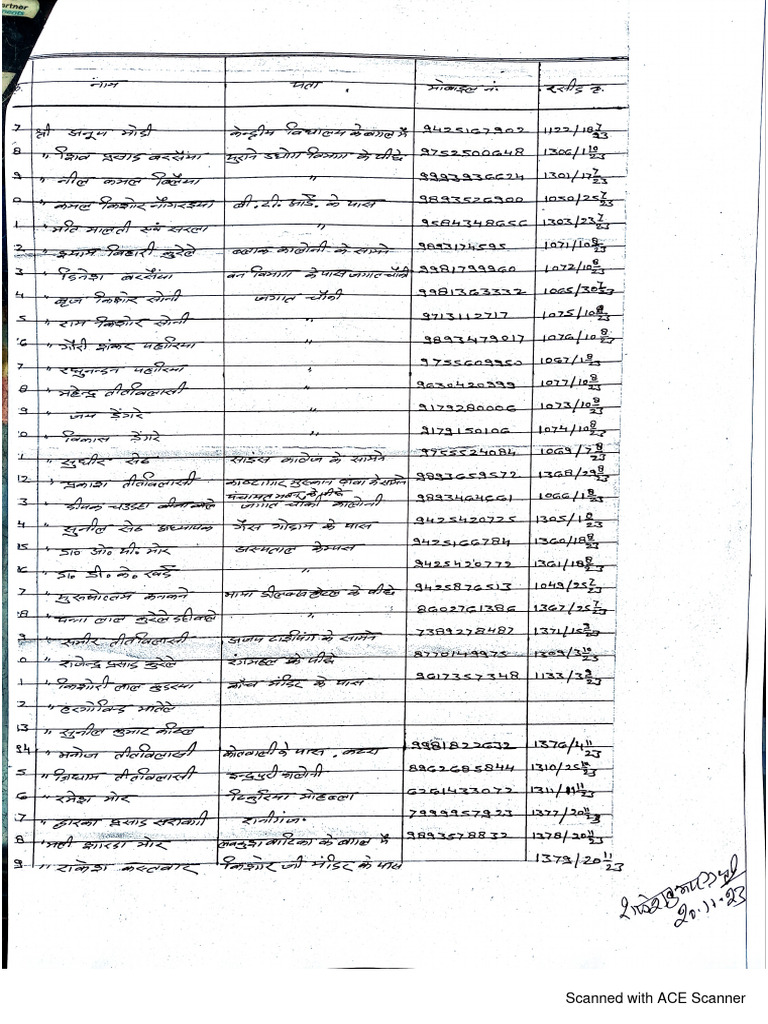 नाम पता मोबाइल नं. रसीद क्र.
7 श्री अनूप मोदी केन्द्रीय विद्यालय के बगल में 9425167902 1122/18 7/23
8 " शिव प्रसाद बरसैंया पुराने उद्योग विभाग के पीछे 9752500648 1306/1 10/23
9 " नील कमल बिलैंया " 9993936624 1301/17 7/23
0 " कमल किशोर नौगरइया बी.टी.आई. के पास 9893526900 1050/25 7/23
1 " मति मालती सरला " 9584348656 1303/23 7/23
2 " श्याम बिहारी लुरेले ब्लाक कालोनी के सामने 9893174595 1071/10 8/23
3 " दिनेश बरसैंया वन विभाग के पास जगात चौकी 9981799960 1072/10 8/23
4 " बृज किशोर सोनी जगात चौकी 9981363332 1065/30 7/23
5 " राम किशोर सोनी " 9713112717 1075/10 8/23
6 " गौरी शंकर पहारिया " 9893479017 1076/10 8/23
7 " रघुनन्दन पहारिया " 9755609950 1067/1 8/23
8 " महेन्द्र तीतविलासी " 9630420399 1077/10 8/23
9 " जय डेंगरे " 9179280006 1073/10 8/23
0 " विकास डेंगरे " 9179150106 1074/10 8/23
1 " सुधीर सेठ साइंस कालेज के सामने 9755524084 1069/7 8/23
12 " प्रकाश तीतविलासी के सामने 9893659572 1368/29 8/23
पंचायत भवन के पीछे
3 " दीपक चउदा बीना वाले जगात चौकी कालोनी 9893464661 1066/1 8/23
4 " सुनील सेठ अध्यापक गैस गोदाम के पास 9425420725 1305/1 8/23
15 " डा. ओ. पी. मोर अस्पताल केम्पस 9425166784 1360/18 8/23
16 " डा. डी. के. खर्द " 9425420772 1361/18 8/23
7 " पुरुषोत्तम कनकने मामा डीलक्स होटल के पीछे 9425876513 1049/25 7/23
8 " पन्ना लाल लुरेले " 8602761386 1367/25 7/23
9 " समीर तीतविलासी अजय टाइपिंग के सामने 7389278487 1371/15 9/23
0 " राजेन्द्र प्रसाद लुरेले रंगमहल के पीछे 8770149975 1309/3 10/23
1 " किशोरी लाल कुडरया काँच मंदिर के पास 9617357348 1133/3 9/23
2 " हरगोविन्द मातेले
13 " सुनील कुमार
24 " मनोज तीतविलासी कोतवाली के पास . कटरा 9981822632 1376/4 11/23
5 " तीतविलासी इन्द्रपुरी कालोनी 8962685844 1310/25 10/23
6 " रमेश मोर टिकुरिया मोहल्ला 6261433072 1311/ 11/23
7 " द्वारका प्रसाद सरावगी रानीगंज. 7999957923 1377/20 11/23
8 " शारदा मोर लवकुश वाटिका के बगल में 9893578832 1378/20 11/23
9 " राकेश कस्तवार किशोर जी मंदिर के पास 1379/20 11/23
20.11.23
Scanned with ACE Scanner